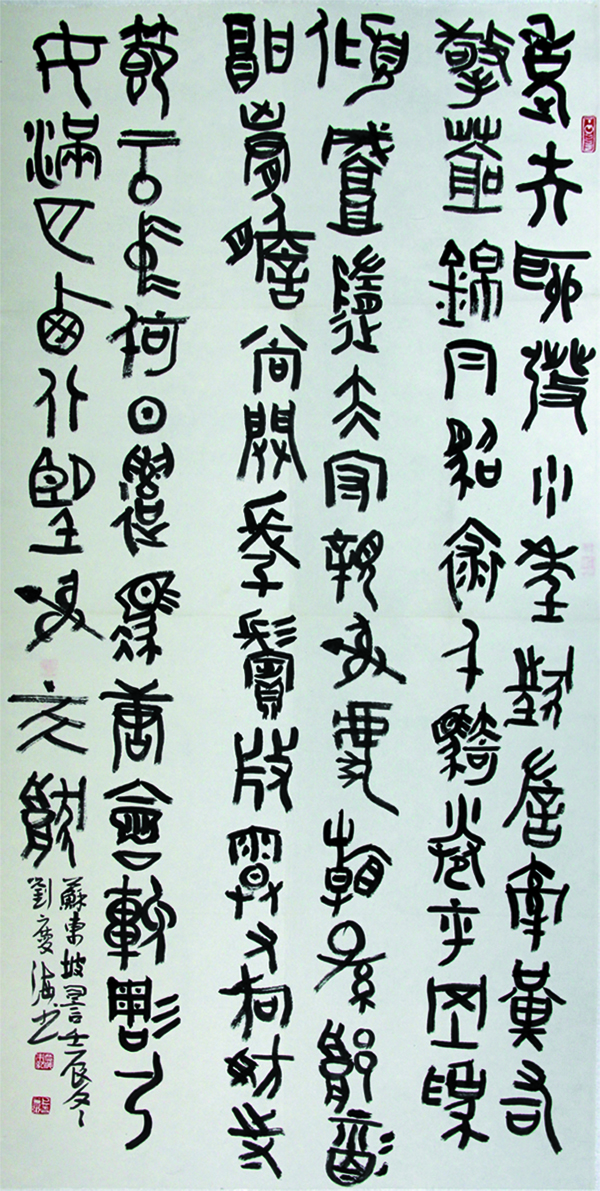 老夫聊發少年狂左牽黃右
擎蒼錦冃貂裘千騎卷平岡報
傾城隨太守親射虎看孫郎酒
酣胸膽尚開張鬢微霜又何妨持
節雲中何日遣馮唐會挽雕弓
如滿月西北望射天狼
蘇東坡詞壬辰冬
劉慶海書